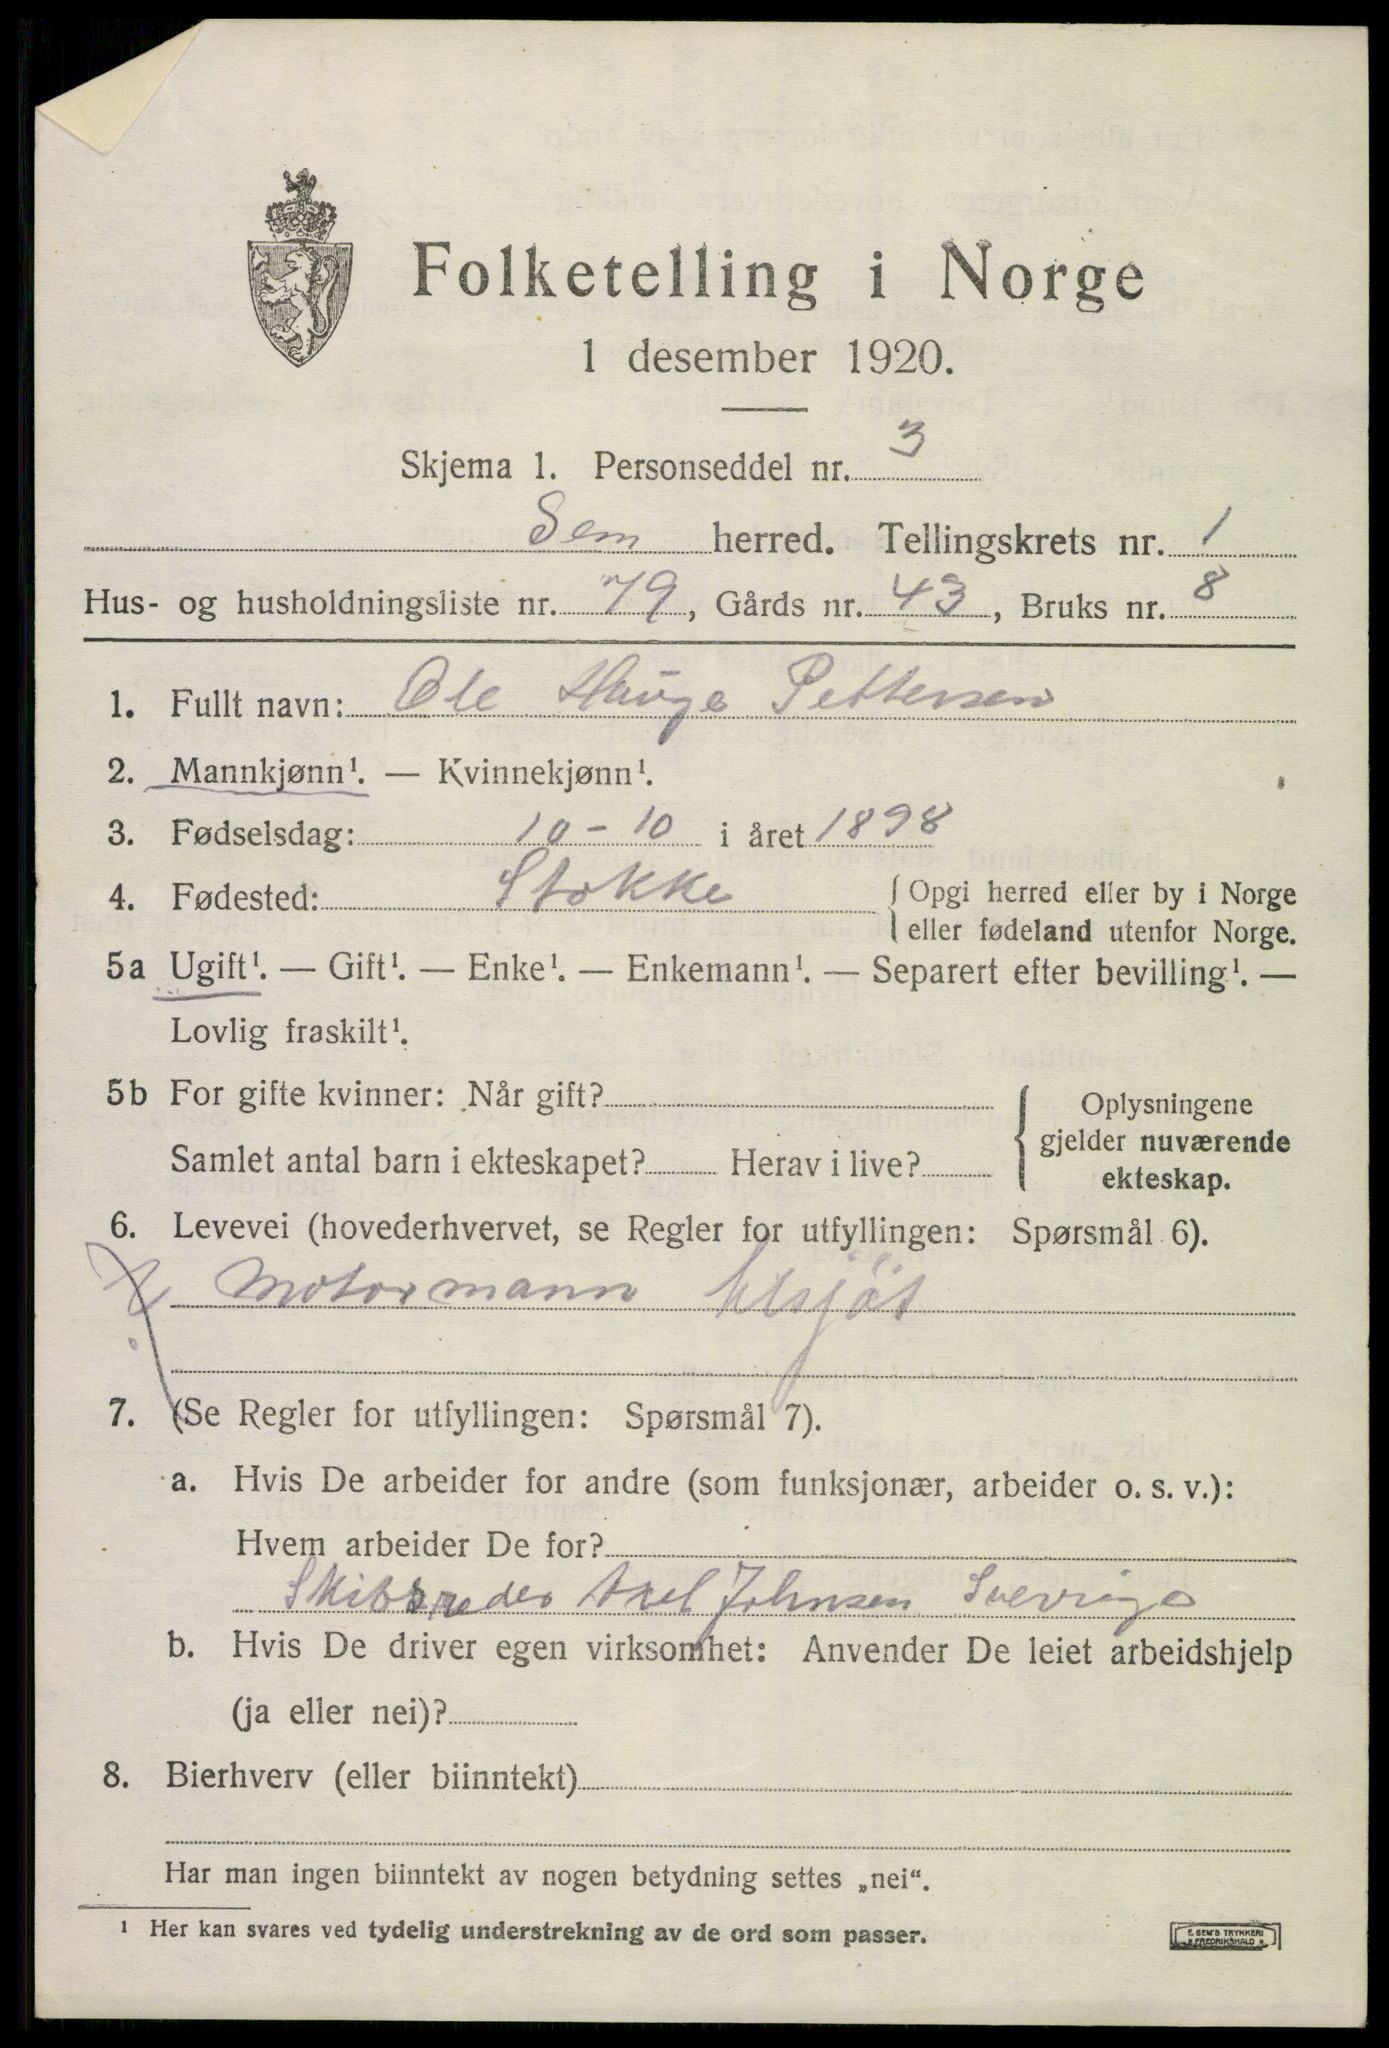 Folketelling i Norge
1 desember 1920.
Skjema 1. Personseddel nr. 3
Sem herred. Tellingskrets nr. 1
Hus- og husholdningsliste nr. 79, Gårds nr. 43, Bruks nr. 8
1. Fullt navn: Ole Hauge Pettersen
2. Mannkjønn¹. — Kvinnekjønn¹.
3. Fødselsdag: 10-10 i året 1898
4. Fødested: Stokke { Opgi herred eller by i Norge
eller fødeland utenfor Norge.
5a Ugift¹. — Gift¹. — Enke¹. — Enkemann¹. — Separert efter bevilling¹. —
Lovlig fraskilt¹.
5b For gifte kvinner: Når gift?
Samlet antal barn i ekteskapet? Herav i live?
{ Oplysningene
gjelder nuværende
ekteskap.
6. Levevei (hovederhvervet, se Regler for utfyllingen: Spørsmål 6).
Motormann
7. (Se Regler for utfyllingen: Spørsmål 7).
a. Hvis De arbeider for andre (som funksjonær, arbeider o. s. v.):
Hvem arbeider De for?
Skibsreder Axel Johnsen Sverrige
b. Hvis De driver egen virksomhet: Anvender De leiet arbeidshjelp
(ja eller nei)?
8. Bierhverv (eller biinntekt)
Har man ingen biinntekt av nogen betydning settes „nei“.
¹ Her kan svares ved tydelig understrekning av de ord som passer.
E. SEM'S TRYKKERI
FREDRIKSHALD